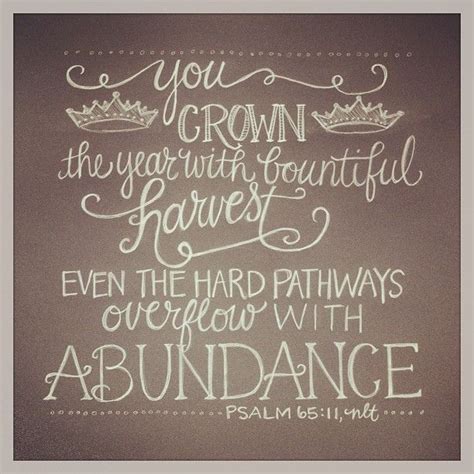 you
CROWN
the year with bountiful
harvest
EVEN THE HARD PATHWAYS
overflow WITH
ABUNDANCE
PSALM 65:11, nlt